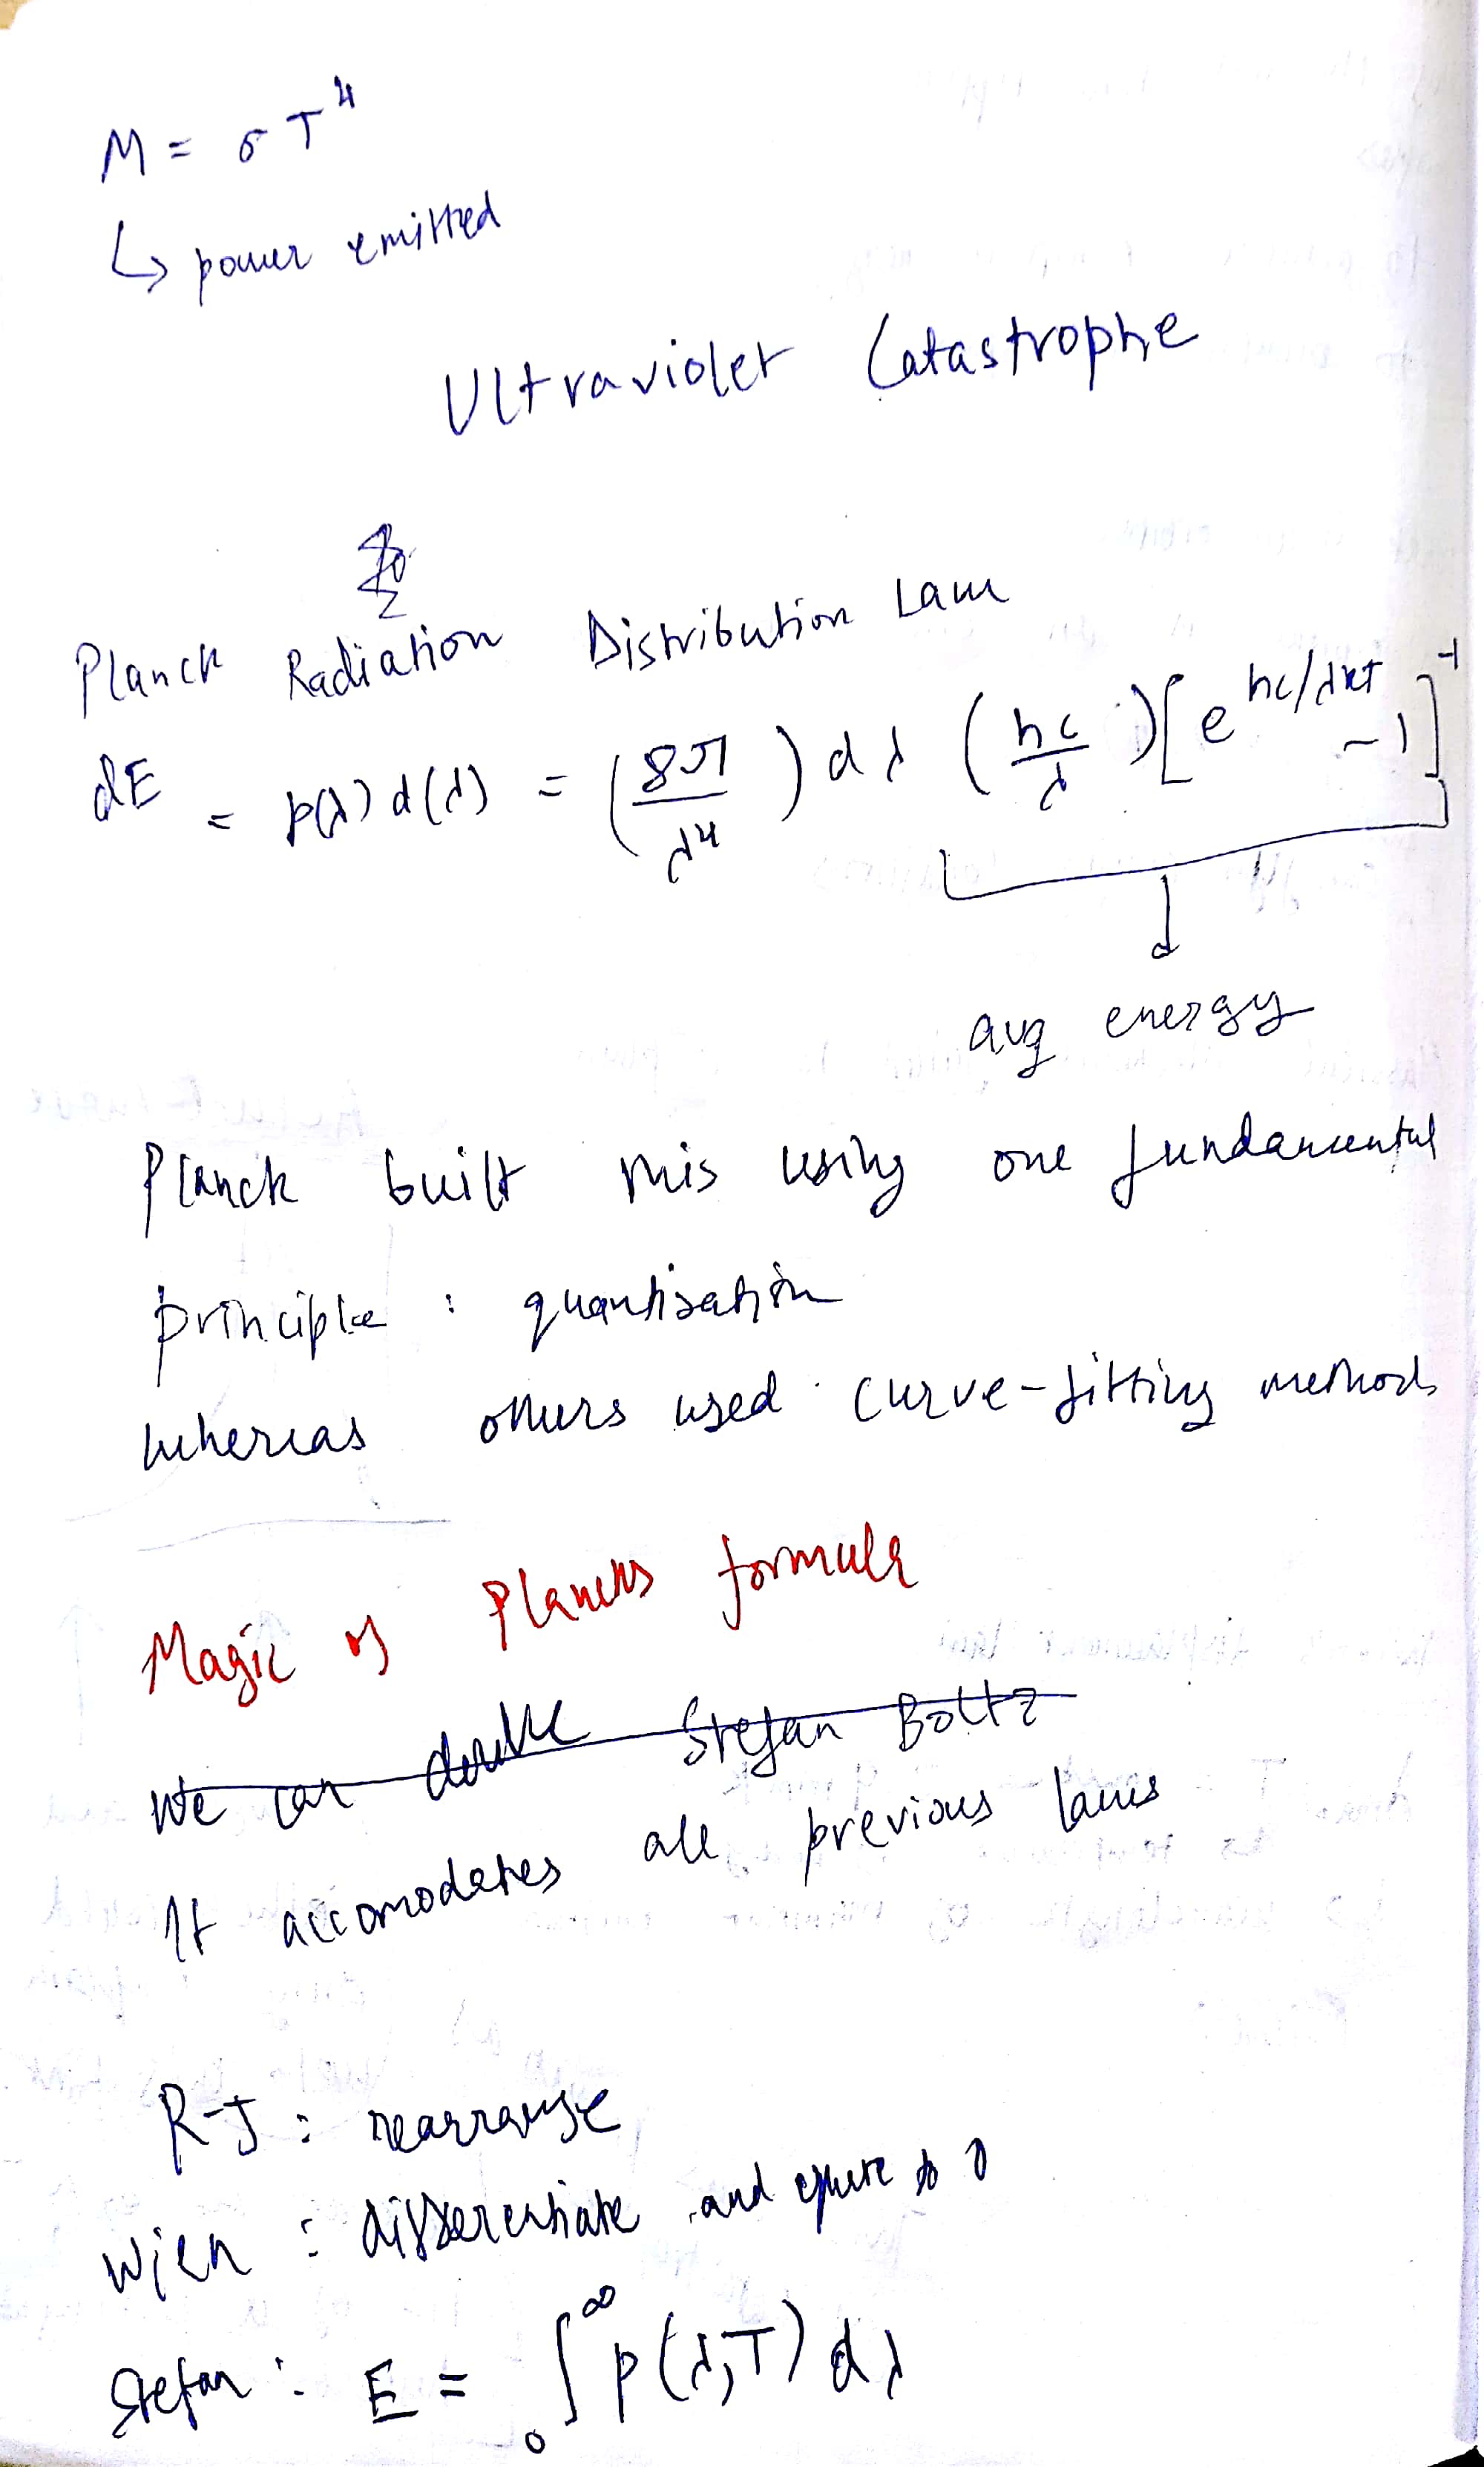 M = σT⁴
↳ power emitted
Ultraviolet Catastrophe
Planck Radiation Distribution Law
dE = p(λ) d(λ) = (8π/λ⁴) dλ (hc/λ) [e^hc/λkT - 1]⁻¹
avg energy
Planck built this using one fundamental
principle : quantisation
whereas others used curve-fitting methods
Magic of Plancks formula
We can derive Stefan Boltz
It accomodates all previous laws
R-J : rearrange
Wien : differentiate and equate to 0
Stefan : E = ∫₀^∞ p(λ,T) dλ